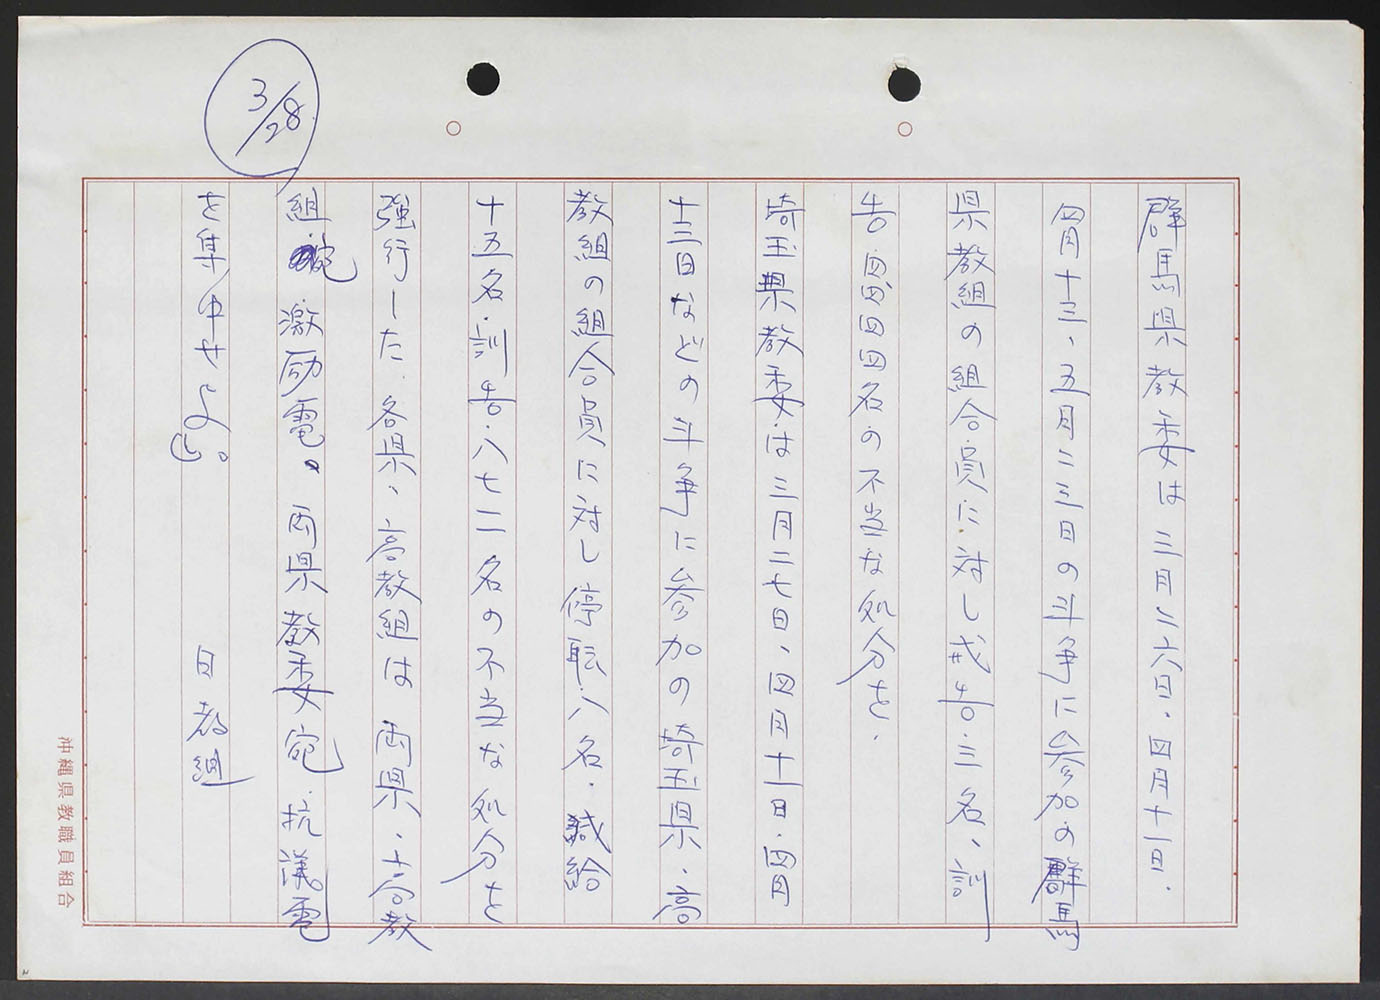 3/28
群馬県教委は三月二六日、四月十一日、
四月十三、五月二三日の斗争に参加の群馬
県教組の組合員に対し戒告・三名、訓
告四四四四名の不当な処分を、
埼玉県教委は三月二七日、四月十一日・四月
十三日などの斗争に参加の埼玉県・高
教組の組合員に対し停転八名・減給
十五名・訓告・八七二名の不当な処分を
強行した、各県、高教組は両県・高教
組宛激励電、両県教委宛抗議電
を集中せよ。
日教組
沖縄県教職員組合